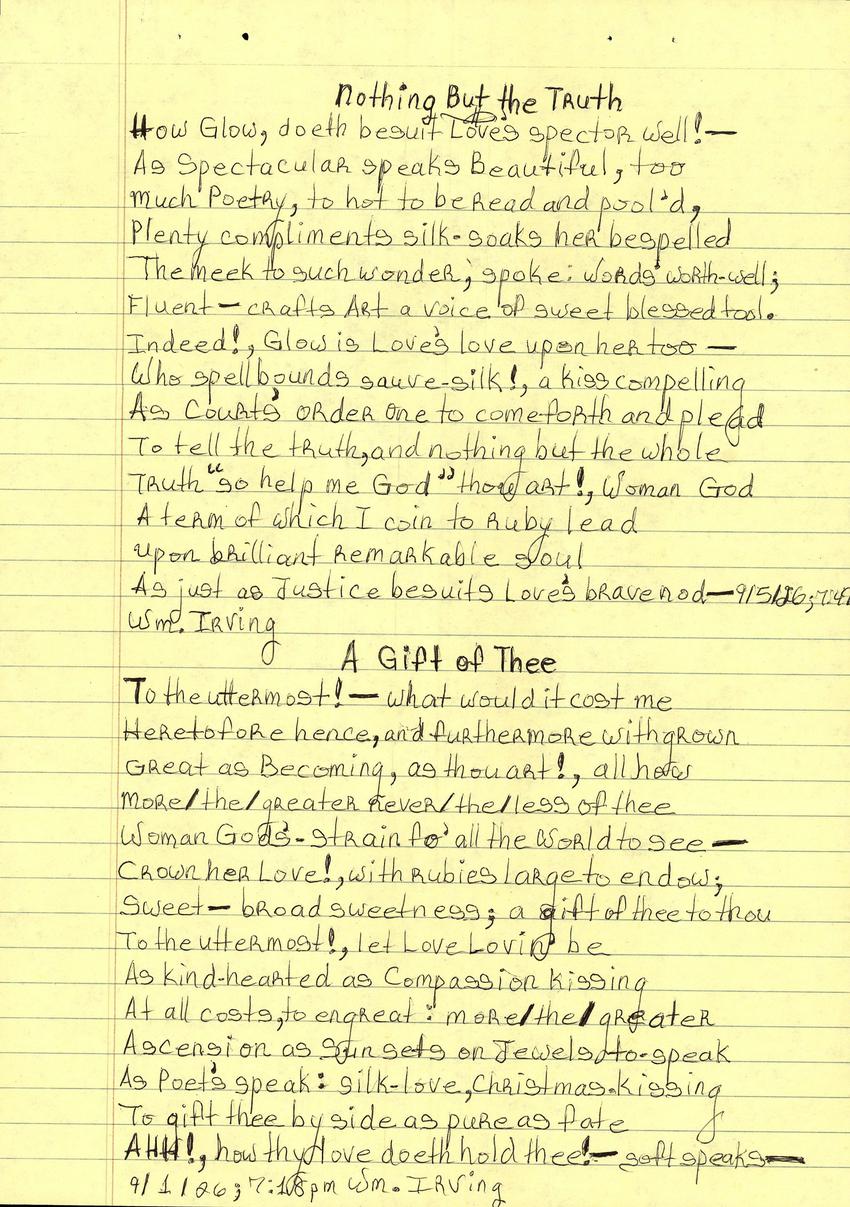 Nothing But the Truth
How Glow, doeth besuit Love's spector well!—
As Spectacular speaks Beautiful, too
much Poetry, to hot to be read and pool'd,
Plenty compliments silk-soaks her bespelled
The meek to such wonder; spoke: words' worth-well;
Fluent — crafts Art a voice of sweet blessed tool.
Indeed!, Glow is Love's love upon her too —
Who spellbounds sauve-silk!, a kiss compelling
As Courts' order one to come forth and plead
To tell the truth, and nothing but the whole
Truth "so help me God" thou art!, Woman God
A term of which I coin to Ruby lead
upon brilliant remarkable soul
As just as Justice besuits Love's brave nod — 9/5/26;
Wm. Irving
A Gift of Thee
To the uttermost! — what would it cost me
Heretofore hence, and furthermore with grown
Great as Becoming, as thou art!, all
more/the/greater never/the/less of thee
Woman God's-strain fo' all the World to see —
Crown her Love!, with rubies large to endow;
Sweet — broad sweetness; a gift of thee to thou
To the uttermost!, let Love Lovin' be
As kind-hearted as Compassion kissing
At all costs, to engreat: more/the/greater
Ascension as Sun sets on Jewels, to-speak
As Poet's speak: silk-love, Christmas-kissing
To gift thee by side as pure as fate
AHH!, how thy love doeth hold thee! — soft speaks —
9/1/26; 7:18pm Wm. Irving